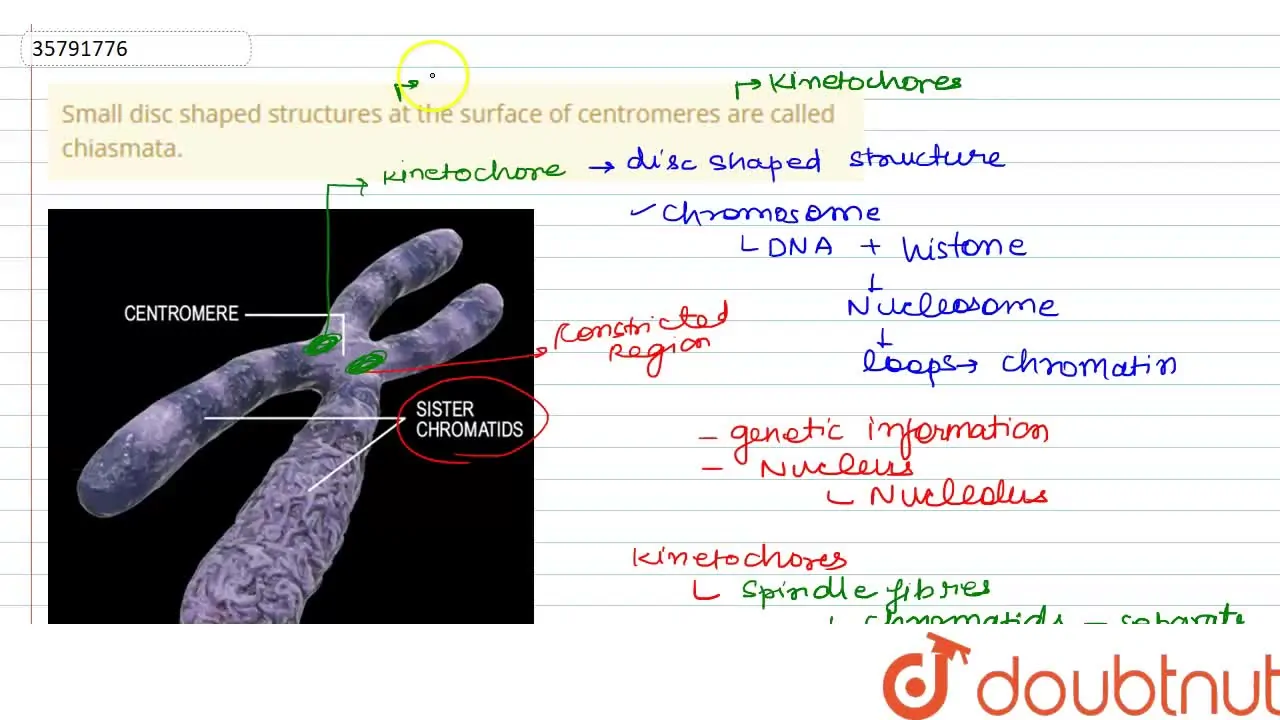 35791776
Kinetochores
Small disc shaped structures at the surface of centromeres are called
chiasmata.
Kinetochore → disc shaped structure
✓ chromosome
DNA + histone
Nucleosome
loops → chromatin
CENTROMERE
Constricted
region
SISTER
CHROMATIDS
- genetic information
- Nucleus
Nucleolus
Kinetochores
spindle fibres
chromatids - separate
doubtnut